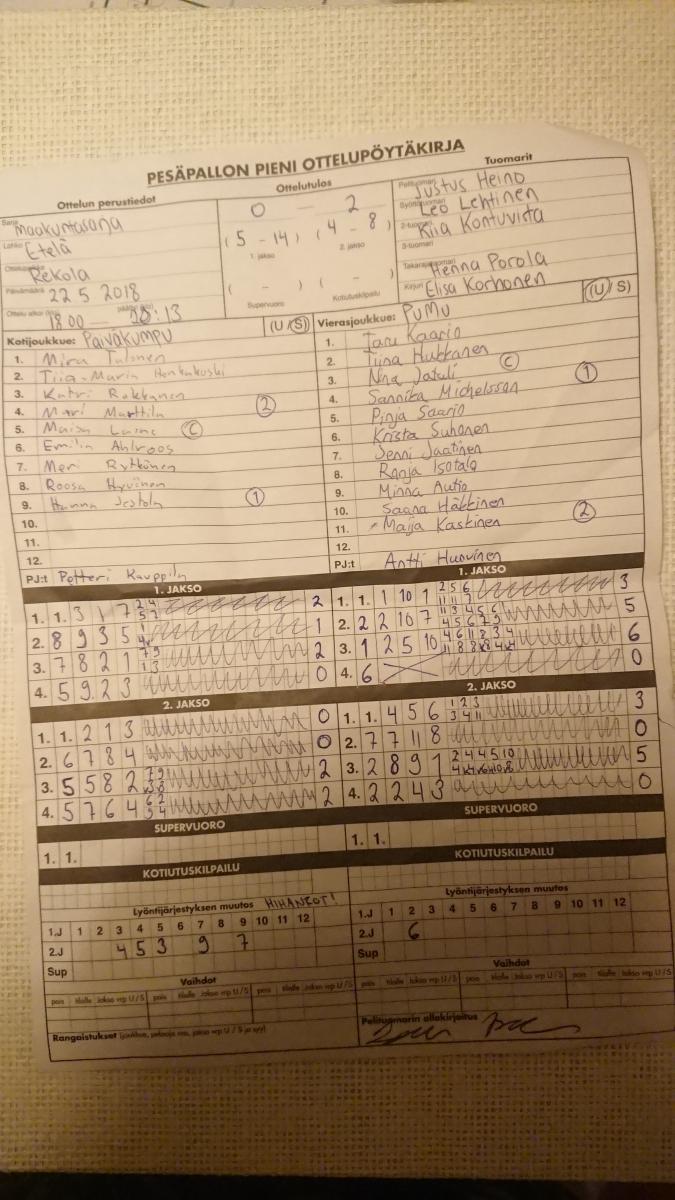 PESÄPALLON PIENI OTTELUPÖYTÄKIRJA
Ottelun perustiedot
Ottelutulos
Tuomarit
Sarja Maakuntasarja
Lohko Etelä
Rekola
Päivämäärä 22 5 2018
18.00 — :13
0 — 2
(5 - 14) (4 - 8)
1. jakso 2. jakso
( - ) ( - )
Supervuoro Kotiutuskilpailu
Pelituomari Justus Heino
Syöttötuomari Leo Lehtinen
2-tuomari Kiia Kontuvirta
3-tuomari
Takarajatuomari Henna Porola
Kirjuri Elisa Korhonen
Kotijoukkue: Päiväkumpu (U/S)
1. Miru Talonen
2. Tiia-Maria
3. Katri Rakkanen
4. Mari Marttila 2
5. Maisa Laine C
6. Emilia Ahlroos
7. Meri Rytkönen
8. Roosa Hyvönen
9. Hanna 1
10.
11.
12.
PJ:t Petteri Kauppila
Vierasjoukkue: PuMu (U/S)
1. Taru Kaario
2. Tiina Hukkanen
3. Nina Jatuli C
4. Sannika Michelsson 1
5. Pinja Saario
6. Krista Suhonen
7. Jenni Jaatinen
8. Ronja Isotalo
9. Minna Autio
10. Saana Häkkinen
11. Maija Kaskinen 2
12.
PJ:t Antti Huovinen
1. JAKSO
1. 1. 3 1 7 2 4 5 7 2
2. 8 9 3 5 1
3. 7 8 2 1 7 9 1 3 2
4. 5 9 2 3 0
1. JAKSO
1. 1. 1 10 1 2 5 6 3
2. 2 2 10 7 5
3. 1 2 5 10 6
4. 6 0
2. JAKSO
1. 1. 2 1 3 0
2. 6 7 8 4 0
3. 5 5 8 2 2
4. 5 7 6 4 6 2 5 4 2
2. JAKSO
1. 1. 4 5 6 1 2 3 3 4 11 3
2. 7 7 11 8 0
3. 2 8 9 1 2 4 4 5 10 5
4. 2 2 4 3 0
SUPERVUORO
1. 1.
SUPERVUORO
1. 1.
KOTIUTUSKILPAILU
KOTIUTUSKILPAILU
Lyöntijärjestyksen muutos HIHANEOT!
1.J 1 2 3 4 5 6 7 8 9 10 11 12
2.J 4 5 3 9 7
Sup
Vaihdot
pois tilalle Jakso vrp U/S pois tilalle Jakso vrp U/S pois tilalle Jakso vrp U/S
Rangaistukset (joukkue, pelaaja nro, jakso vrp U / S ja syy)
Lyöntijärjestyksen muutos
1.J 1 2 3 4 5 6 7 8 9 10 11 12
2.J 6
Sup
Vaihdot
pois tilalle Jakso vrp U/S pois tilalle Jakso vrp U/S pois tilalle Jakso vrp U/S
Pelituomarin allekirjoitus